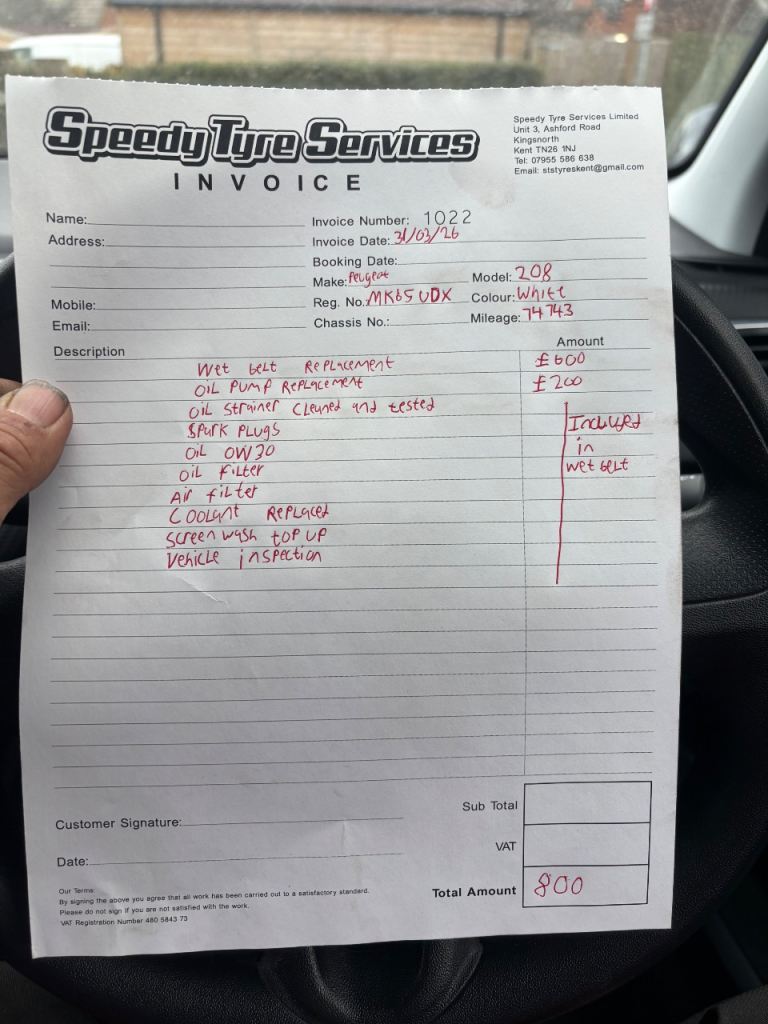 Speedy Tyre Services
INVOICE
Speedy Tyre Services Limited
Unit 3, Ashford Road
Kingsnorth
Kent TN26 1NJ
Tel: 07955 586 638
Email: ststyreskent@gmail.com
Name:
Address:
Mobile:
Email:
Invoice Number: 1022
Invoice Date: 31/03/26
Booking Date:
Make: Peugeot Model: 208
Reg. No. MK65 UDX Colour: White
Chassis No.: Mileage: 74743
Description Amount
Wet belt Replacement £600
Oil Pump Replacement £200
Oil strainer cleaned and tested
Spark Plugs
Oil 0W30
Oil Filter
Air filter
Coolant Replaced
Screen wash top up
Vehicle inspection
Included
in
wet belt
Sub Total
VAT
Total Amount 800
Customer Signature:
Date:
Our Terms:
By signing the above you agree that all work has been carried out to a satisfactory standard.
Please do not sign if you are not satisfied with the work.
VAT Registration Number 480 5843 73